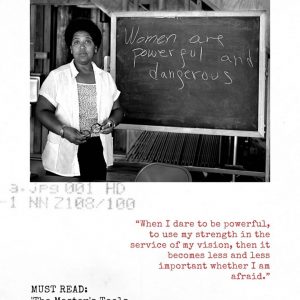 Women are
powerful and
dangerous
a.jpg 001 HD
-1 NN Z108/100
"When I dare to be powerful,
to use my strength in the
service of my vision, then it
becomes less and less
important whether I am
afraid."
MUST READ:
"The Master's Tools